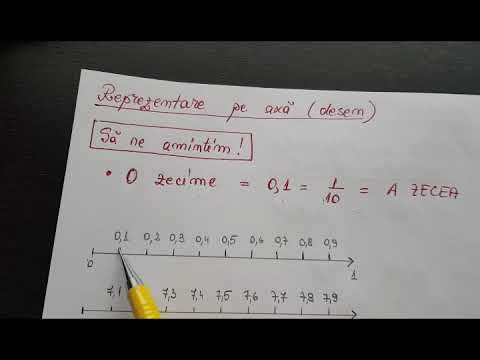 Reprezentare pe axă (desen)
Să ne amintim!
• O zecime = 0,1 = 1/10 = A ZECEA
0,1 0,2 0,3 0,4 0,5 0,6 0,7 0,8 0,9
0 1
7,1 7,3 7,4 7,5 7,6 7,7 7,8 7,9